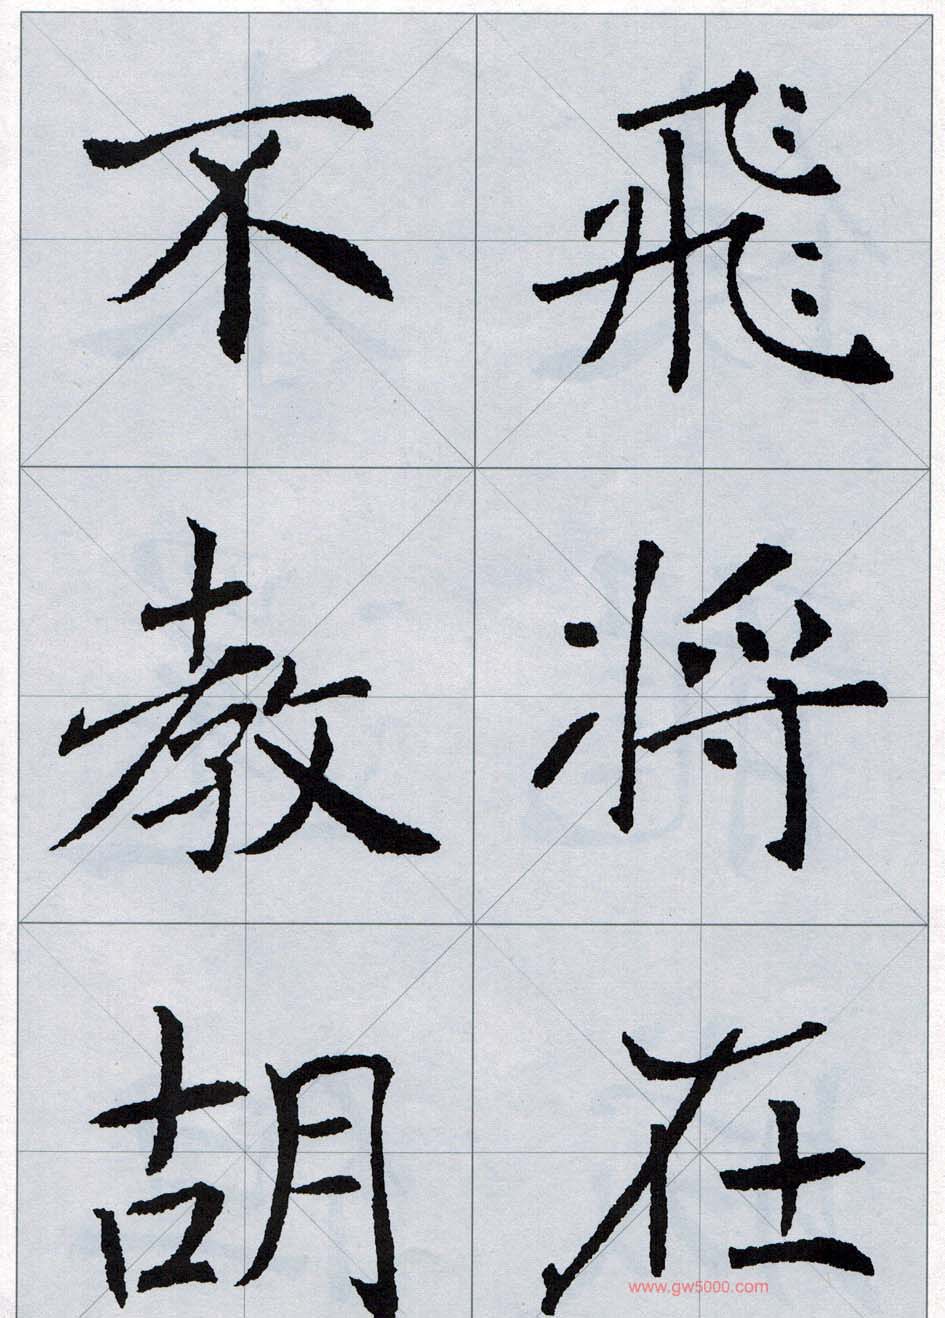 飛将在
不教胡
www.gw5000.com